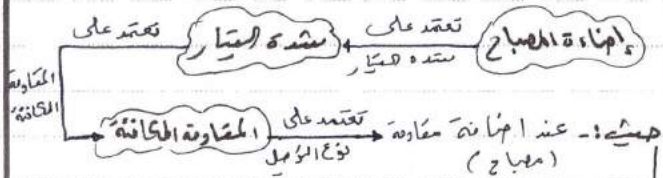 إضاءة المصباح
تعتمد على
شدة التيار
شدة التيار
تعتمد على
المقاومة
المكافئة
المقاومة المكافئة
تعتمد على
نوع التوصيل
حيث :- عند إضافة مقاومة
( مصباح )